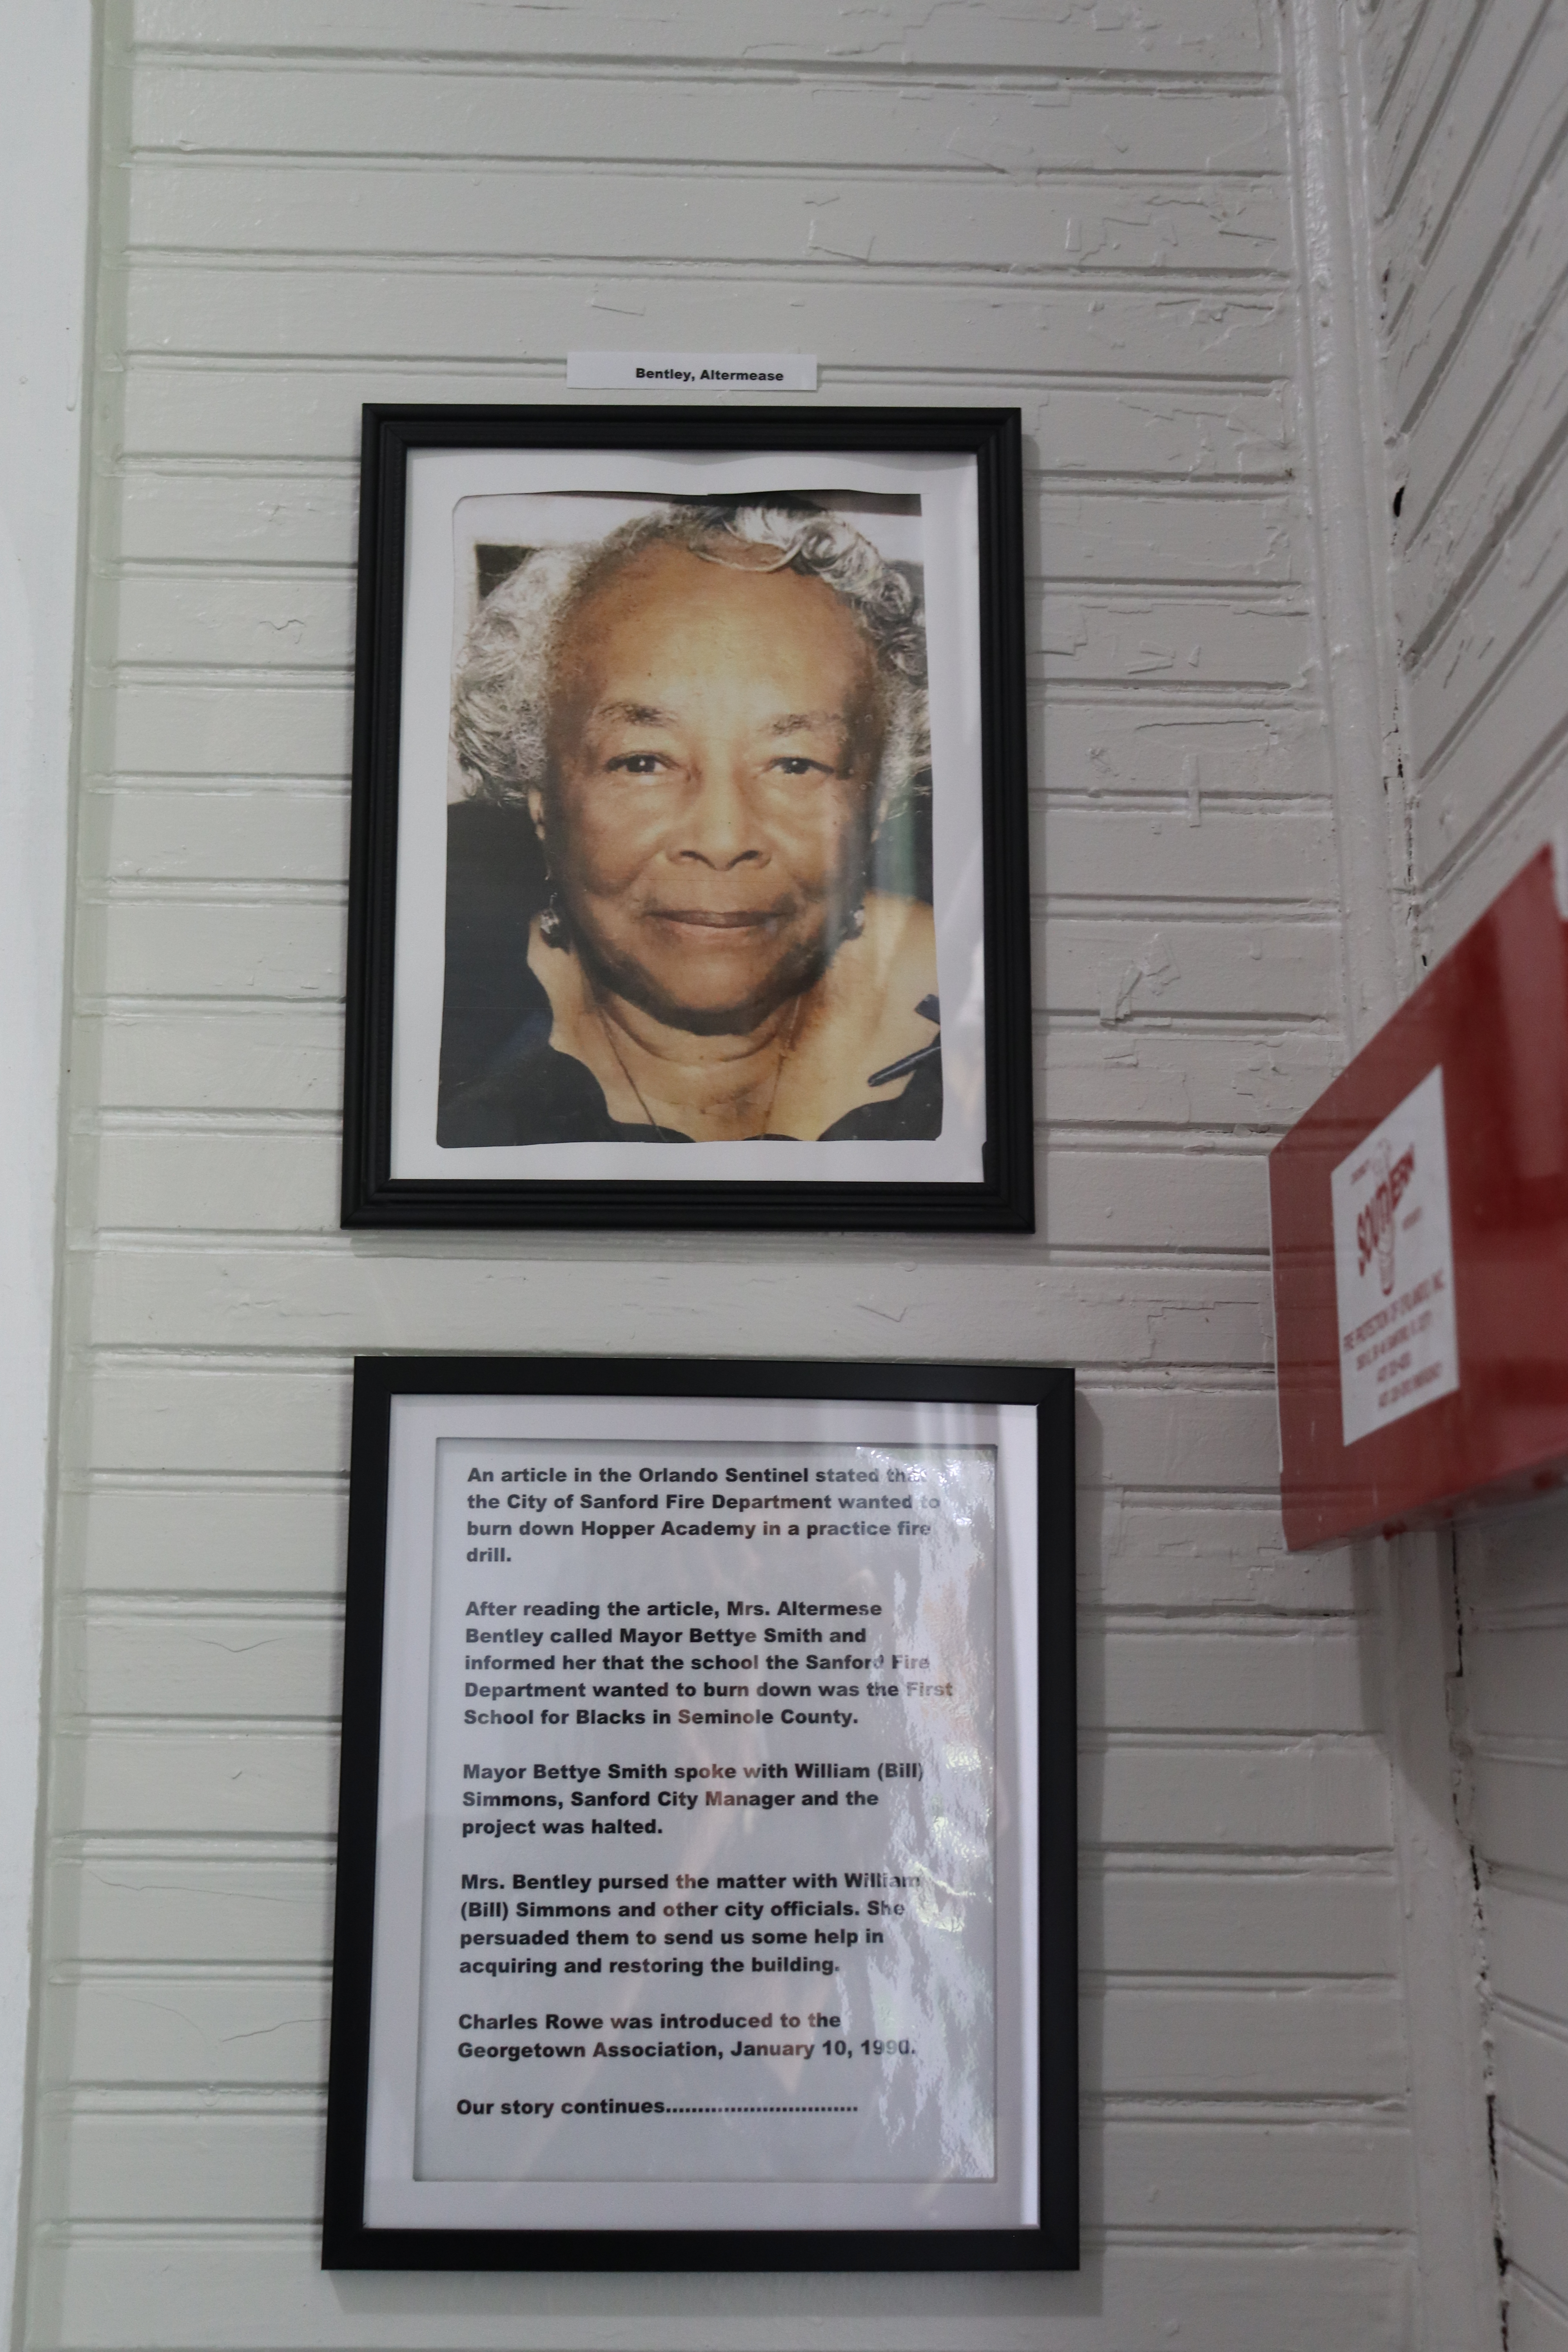 Bentley, Altermease
An article in the Orlando Sentinel stated that
the City of Sanford Fire Department wanted to
burn down Hopper Academy in a practice fire
drill.
After reading the article, Mrs. Altermese
Bentley called Mayor Bettye Smith and
informed her that the school the Sanford Fire
Department wanted to burn down was the First
School for Blacks in Seminole County.
Mayor Bettye Smith spoke with William (Bill)
Simmons, Sanford City Manager and the
project was halted.
Mrs. Bentley pursed the matter with William
(Bill) Simmons and other city officials. She
persuaded them to send us some help in
acquiring and restoring the building.
Charles Rowe was introduced to the
Georgetown Association, January 10, 1990.
Our story continues..............................
SOUTHERN
FIRE PROTECTION OF ORLANDO, INC.